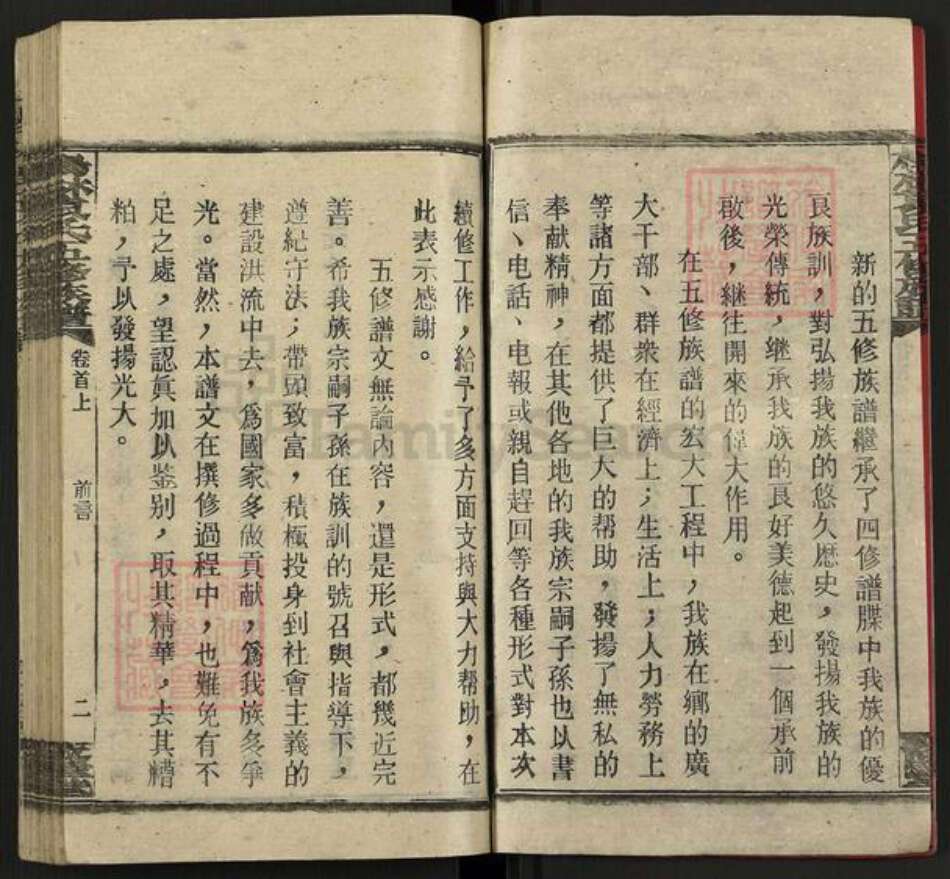 新的五修族譜繼承了四修譜牒中我族的優
良族訓，對弘揚我族的悠久歷史，發揚我族的
光榮傳統，继承我族的良好美德起到一個承前
啟後，継往開來的偉大作用。
在五修族譜的宏大工程中，我族在鄉的廣
大干部、群衆在經濟上；生活上；人力勞務上
等諸方面都提供了巨大的帮助，發揚了無私的
奉献精神，在其他各地的我族宗嗣子孫也以書
信、电話、电報或親自趕回等各種形式對本次
續修工作，給予了多方面支持與大力帮助，在
此表示感謝。
五修譜文無論内容，還是形式，都幾近完
善。希我族宗嗣子孫在族訓的號召與指導下，
遵紀守法；帶頭致富，積極投身到社會主義的
建設洪流中去，爲國家多做貢献，爲我族多爭
光。當然，本譜文在撰修過程中，也難免有不
足之處，望認眞加以鉴别，取其精華，去其糟
粕，予以發揚光大。
卷首上
前言
二
FamilySearch